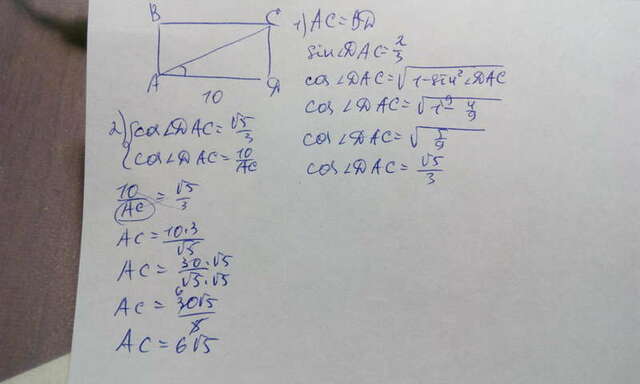 B C
A D
10
1) AC = BD
sin∠DAC = 2/3
cos∠DAC = √(1-sin²∠DAC)
cos∠DAC = √(1⁹ - 4/9)
cos∠DAC = √(5/9)
cos∠DAC = √5/3
2) { cos∠DAC = √5/3
cos∠DAC = 10/AC
10/AC = √5/3
AC = 10·3/√5
AC = 30·√5/√5·√5
AC = ⁶30√5/5
AC = 6√5